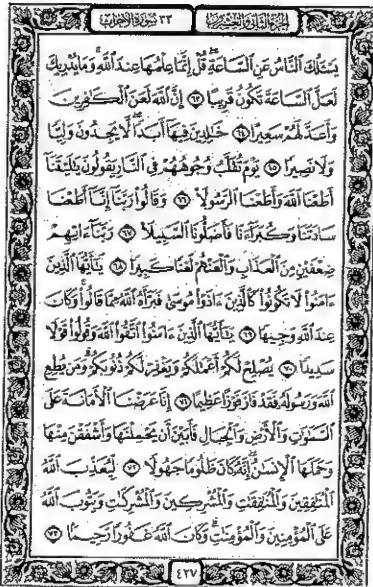 الجزء الثاني والعشرون ٣٣ سورة الأحزاب
يَسْـَٔلُكَ ٱلنَّاسُ عَنِ ٱلسَّاعَةِ ۖ قُلْ إِنَّمَا عِلْمُهَا عِندَ ٱللَّهِ ۚ وَمَا يُدْرِيكَ
لَعَلَّ ٱلسَّاعَةَ تَكُونُ قَرِيبًا ٦٣ إِنَّ ٱللَّهَ لَعَنَ ٱلْكَـٰفِرِينَ
وَأَعَدَّ لَهُمْ سَعِيرًا ٦٤ خَـٰلِدِينَ فِيهَآ أَبَدًا ۖ لَّا يَجِدُونَ وَلِيًّا
وَلَا نَصِيرًا ٦٥ يَوْمَ تُقَلَّبُ وُجُوهُهُمْ فِى ٱلنَّارِ يَقُولُونَ يَـٰلَيْتَنَآ
أَطَعْنَا ٱللَّهَ وَأَطَعْنَا ٱلرَّسُولَا۠ ٦٦ وَقَالُوا۟ رَبَّنَآ إِنَّآ أَطَعْنَا
سَادَتَنَا وَكُبَرَآءَنَا فَأَضَلُّونَا ٱلسَّبِيلَا۠ ٦٧ رَبَّنَآ ءَاتِهِمْ
ضِعْفَيْنِ مِنَ ٱلْعَذَابِ وَٱلْعَنْهُمْ لَعْنًا كَبِيرًا ٦٨ يَـٰٓأَيُّهَا ٱلَّذِينَ
ءَامَنُوا۟ لَا تَكُونُوا۟ كَٱلَّذِينَ ءَاذَوْا۟ مُوسَىٰ فَبَرَّأَهُ ٱللَّهُ مِمَّا قَالُوا۟ ۚ وَكَانَ
عِندَ ٱللَّهِ وَجِيهًا ٦٩ يَـٰٓأَيُّهَا ٱلَّذِينَ ءَامَنُوا۟ ٱتَّقُوا۟ ٱللَّهَ وَقُولُوا۟ قَوْلًا
سَدِيدًا ٧٠ يُصْلِحْ لَكُمْ أَعْمَـٰلَكُمْ وَيَغْفِرْ لَكُمْ ذُنُوبَكُمْ ۗ وَمَن يُطِعِ
ٱللَّهَ وَرَسُولَهُۥ فَقَدْ فَازَ فَوْزًا عَظِيمًا ٧١ إِنَّا عَرَضْنَا ٱلْأَمَانَةَ عَلَى
ٱلسَّمَـٰوَٰتِ وَٱلْأَرْضِ وَٱلْجِبَالِ فَأَبَيْنَ أَن يَحْمِلْنَهَا وَأَشْفَقْنَ مِنْهَا
وَحَمَلَهَا ٱلْإِنسَـٰنُ ۖ إِنَّهُۥ كَانَ ظَلُومًا جَهُولًا ٧٢ لِّيُعَذِّبَ ٱللَّهُ
ٱلْمُنَـٰفِقِينَ وَٱلْمُنَـٰفِقَـٰتِ وَٱلْمُشْرِكِينَ وَٱلْمُشْرِكَـٰتِ وَيَتُوبَ ٱللَّهُ
عَلَى ٱلْمُؤْمِنِينَ وَٱلْمُؤْمِنَـٰتِ ۗ وَكَانَ ٱللَّهُ غَفُورًا رَّحِيمًۢا ٧٣
٤٢٧